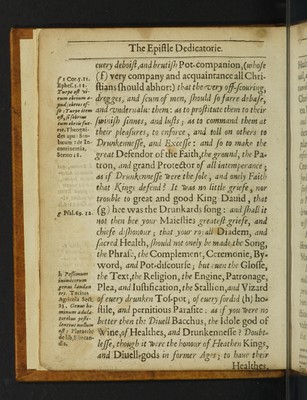 The Epistle Dedicatorie.
euery deboist, and brutish Pot-companion, (whose
(f) very company and acquaintance all Chri-
stians should abhor:) that the very off-scouring,
dregges, and scum of men, should so farre debase,
and undervalue them: as to prostitute them to their
swinish sinnes, and lusts; as to command them at
their pleasures, to enforce, and toll on others to
Drunkennesse, and Excesse: and so to make the
great Defendor of the Faith, the ground, the Pa-
tron, and grand Protector of all intemperance;
as if Drunkennesse were the sole, and onely Faith
that Kings defend? It was no little griefe, nor
trouble to great and good King Dauid, that
(g) hee was the Drunkards song: and shall it
not then bee your Maiesties greatest griefe, and
chiefe dishonour; that your royall Diadem, and
sacred Health, should not onely be made the Song,
the Phrase, the Complement, Ceremonie, By-
word, and Pot-discourse; but euen the Glosse,
the Text, the Religion, the Engine, Patronage,
Plea, and Iustification, the Stallion, and Vizard
of euery drunken Tos-pot; of euery sordid (h) ho-
stile, and pernitious Parasite: as if you were no
better then the Diuell Bacchus, the Idole god of
Wine, of Healthes, and Drunkennesse? Doubt-
lesse, though it were the honour of Heathen Kings,
and Diuell-gods in former Ages; to haue their
Healthes,
f 1 Cor. 5. 11.
Ephes. 5. 11.
g Psal. 69. 12.
h Pessimum
inimicorum
genus laudan
tes. Tacitus
Agricola Sect.